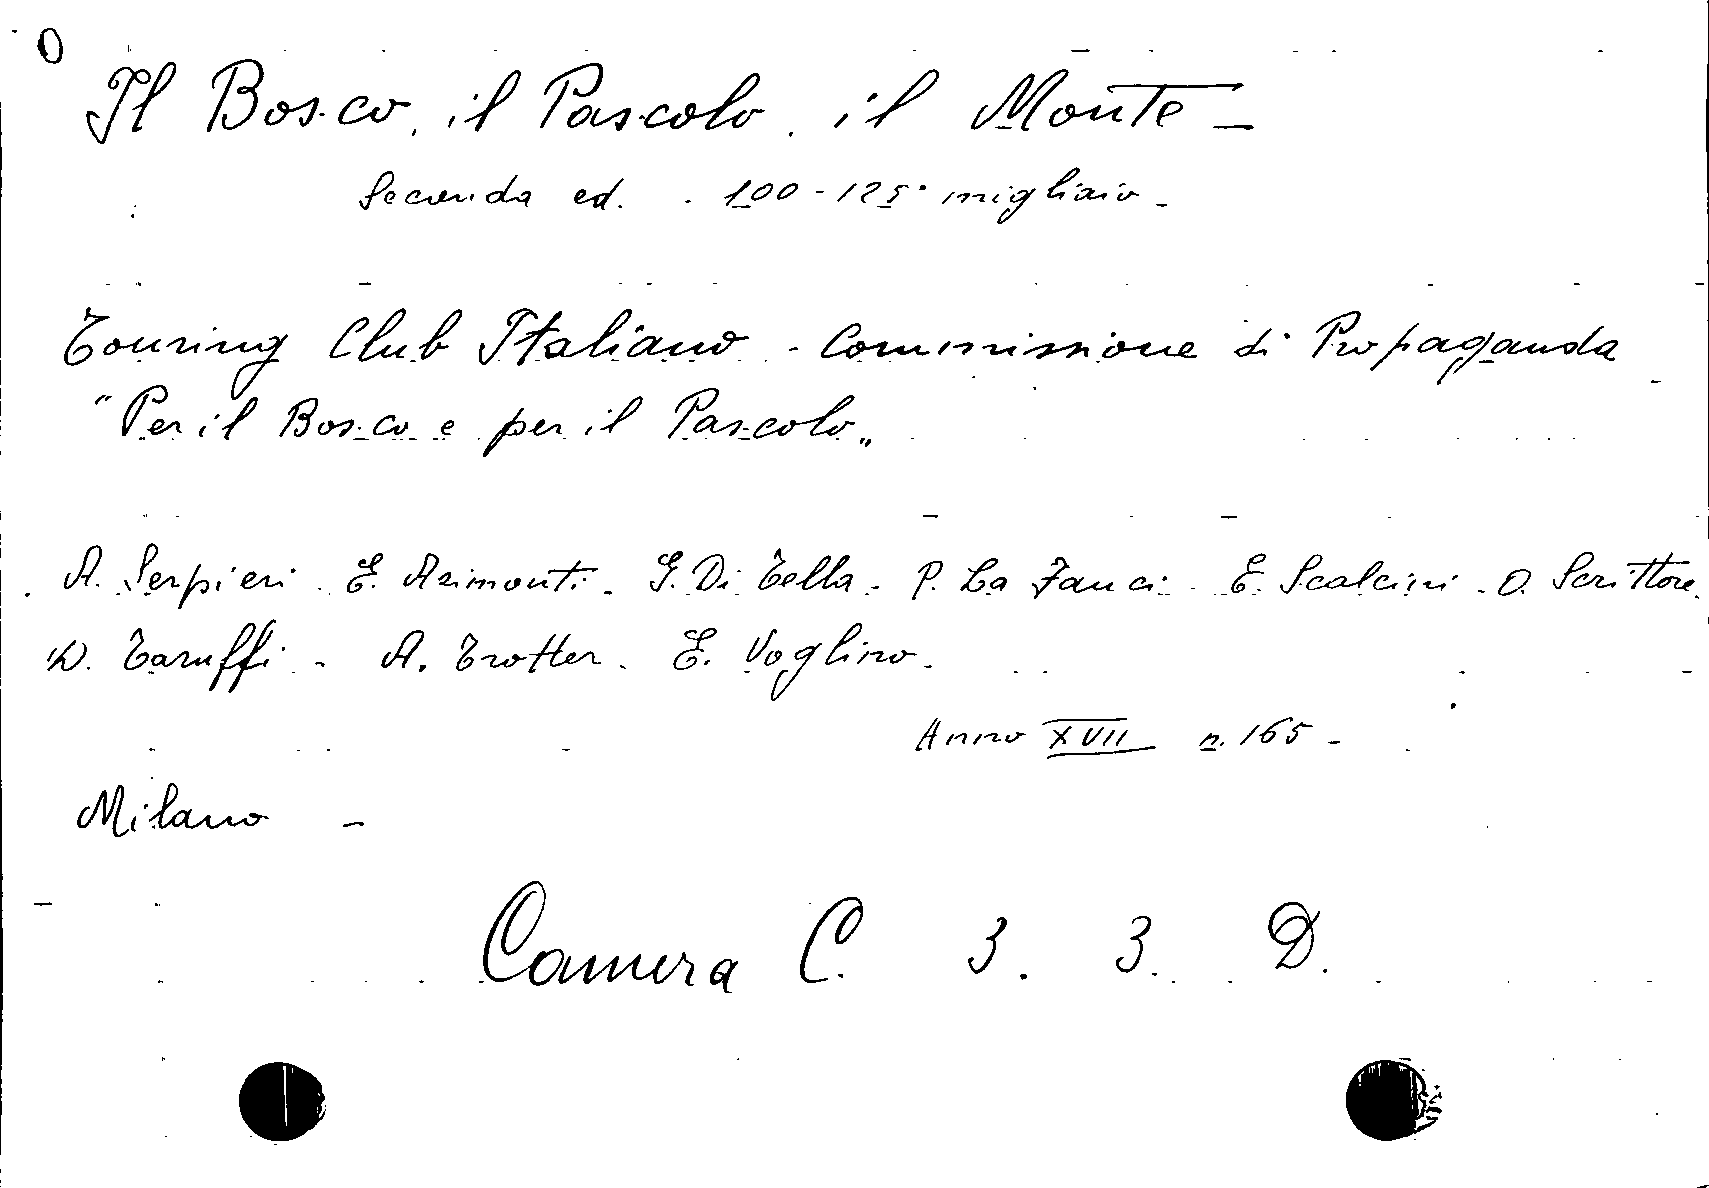 0
Il Bosco, il Pascolo, il Monte -
Seconda ed. - 100-125° migliaio -
Touring Club Italiano - Commissione di Propaganda
"Per il Bosco e per il Pascolo„
A. Serpieri - E. Azimonti - G. Di Tella - P. La Fauci - E. Scalcini - O. Scrittore
D. Taruffi - A. Trotter - E. Voglino -
Anno XVII n. 165 -
Milano -
Camera C. 3. 3. D.